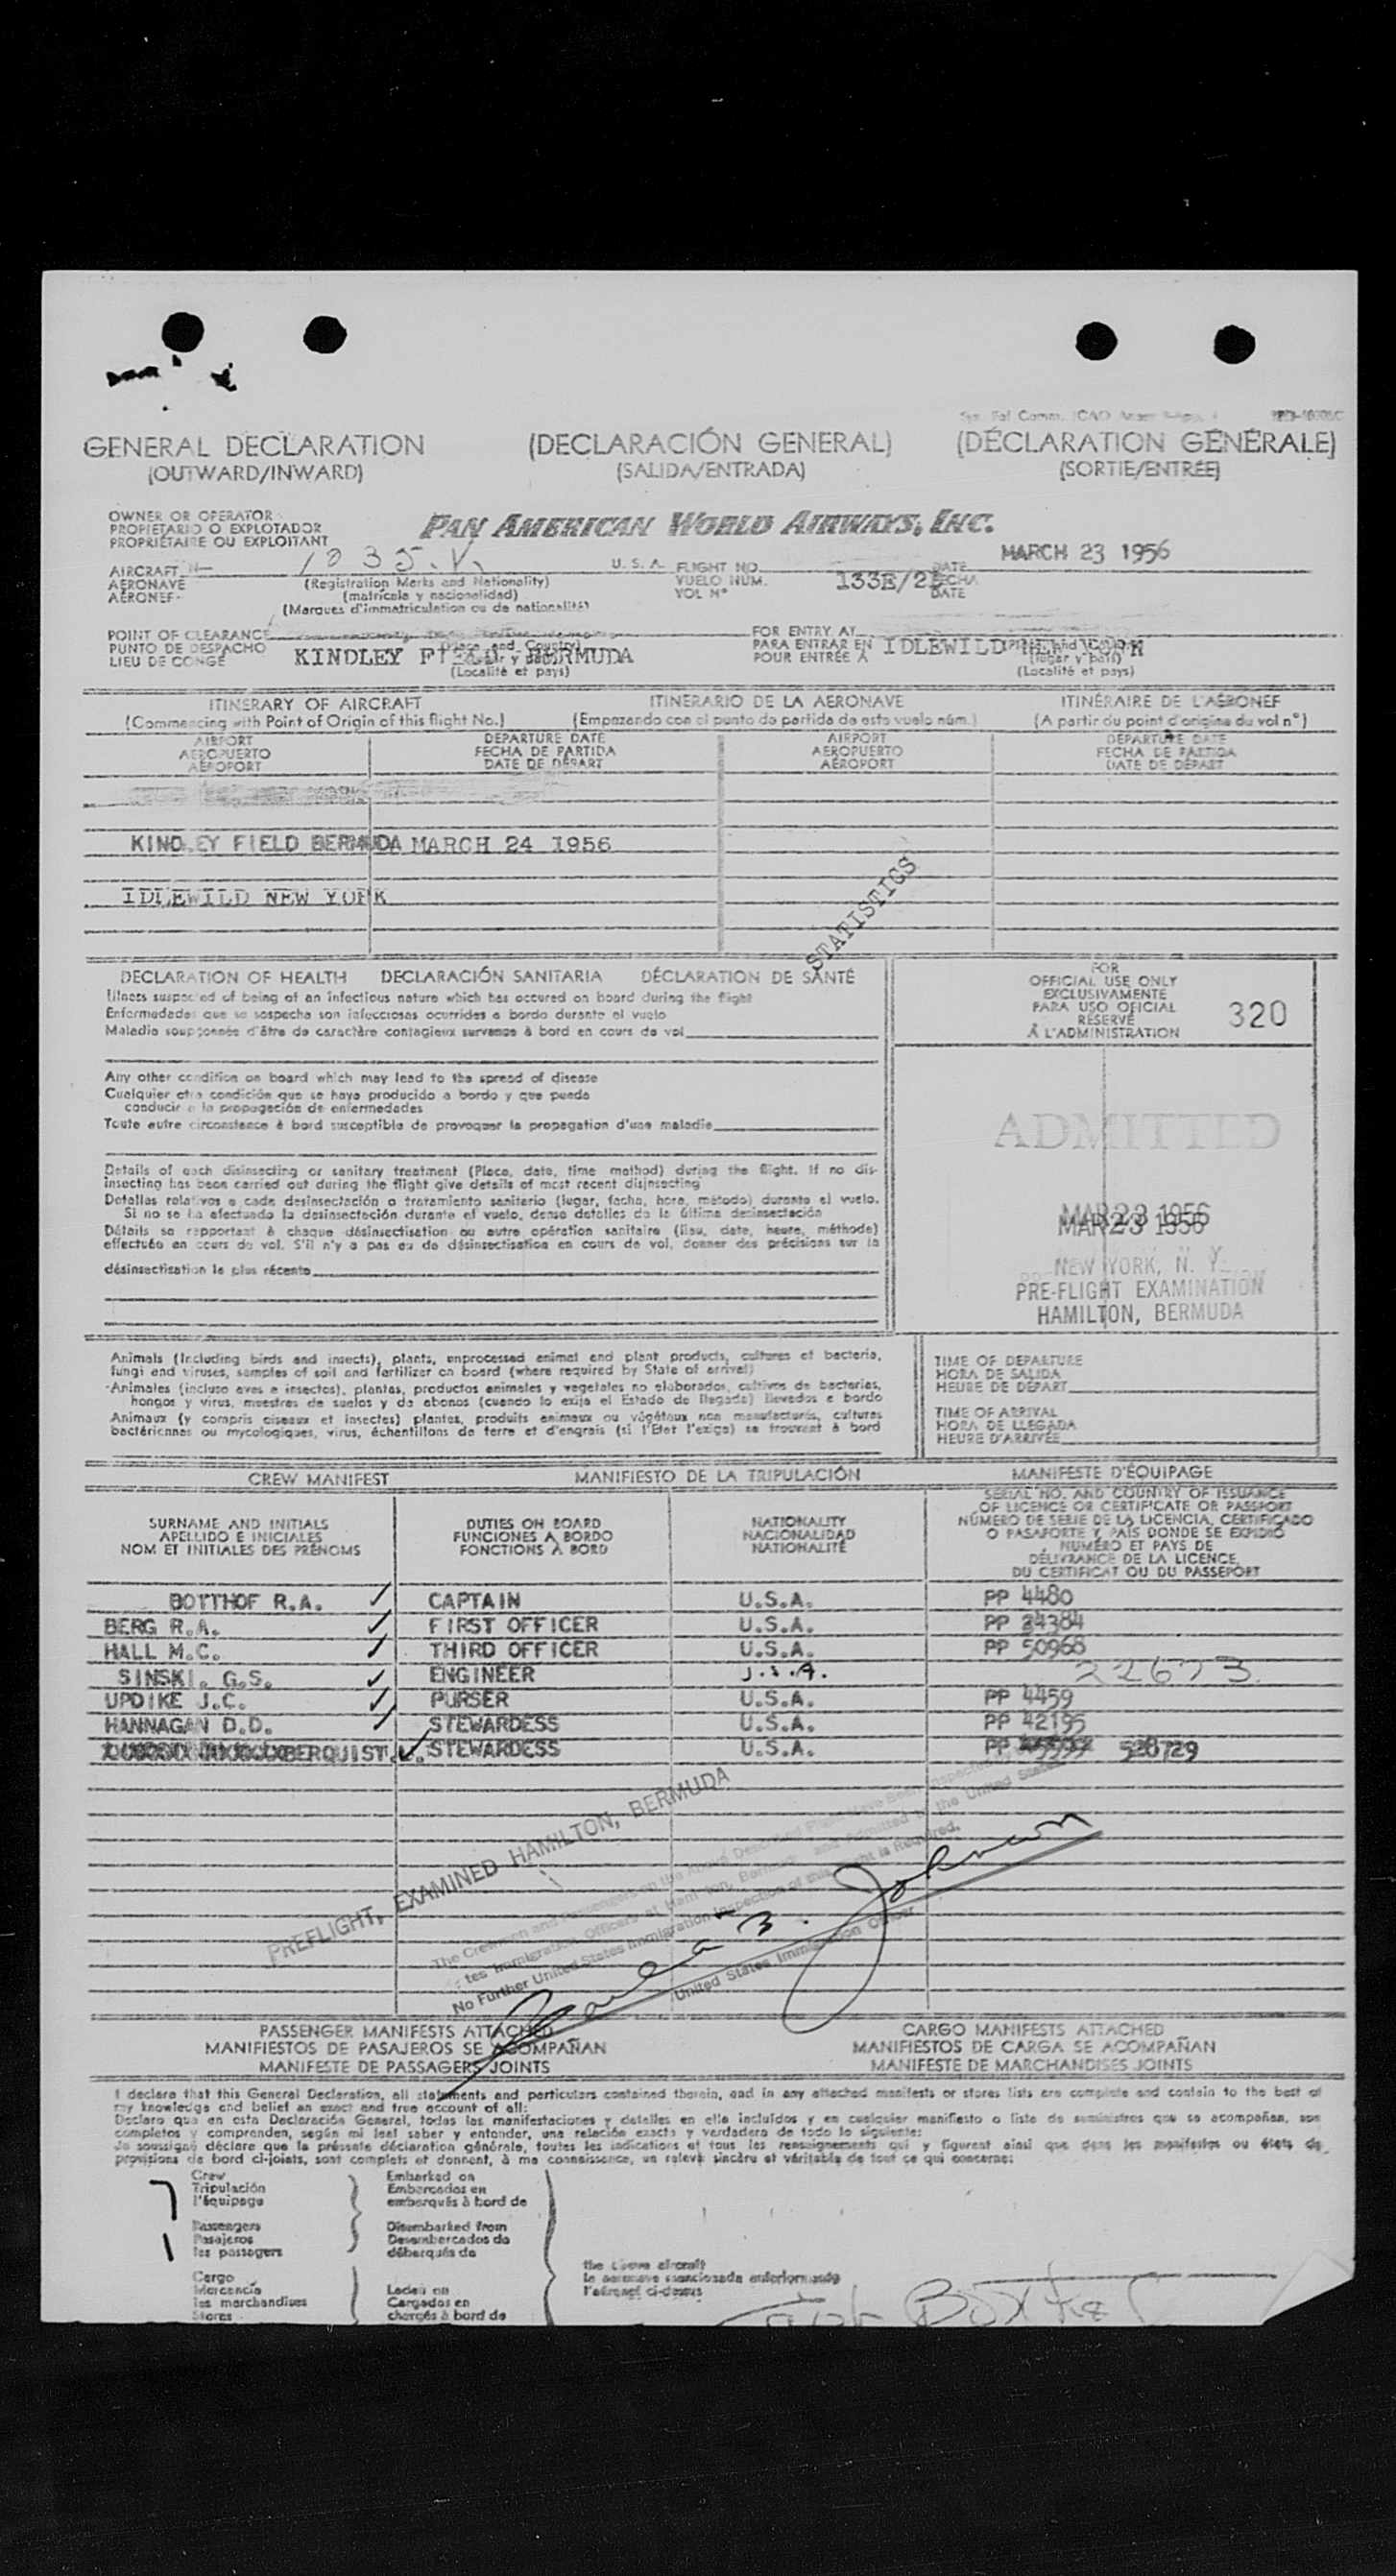 GENERAL DECLARATION (DECLARACIÓN GENERAL) (DÉCLARATION GÉNÉRALE)
(OUTWARD/INWARD) (SALIDA/ENTRADA) (SORTIE/ENTRÉE)
OWNER OR OPERATOR
PROPIETARIO O EXPLOTADOR
PROPRIÉTAIRE OU EXPLOITANT
PAN AMERICAN WORLD AIRWAYS, INC.
AIRCRAFT N- 1035.V. U. S. A. FLIGHT NO. DATE MARCH 23 1956
AERONAVE (Registration Marks and Nationality) VUELO NUM. 133E/23 FECHA
AÉRONEF (matrícula y nacionalidad) VOL Nº DATE
(Marques d'immatriculation ou de nationalité)
POINT OF CLEARANCE FOR ENTRY AT
PUNTO DE DESPACHO KINDLEY FIELD BERMUDA PARA ENTRAR EN IDLEWILD NEW YORK
LIEU DE CONGÉ (Localité et pays) POUR ENTRÉE À (Localité et pays)
ITINERARY OF AIRCRAFT ITINERARIO DE LA AERONAVE ITINÉRAIRE DE L'AÉRONEF
(Commencing with Point of Origin of this flight No.) (Empezando con el punto de partida de este vuelo núm.) (A partir du point d'origine du vol nº)
AIRPORT DEPARTURE DATE AIRPORT DEPARTURE DATE
AEROPUERTO FECHA DE PARTIDA AEROPUERTO FECHA DE PARTIDA
AÉROPORT DATE DE DÉPART AÉROPORT DATE DE DÉPART
KINDLEY FIELD BERMUDA MARCH 24 1956
IDLEWILD NEW YORK
STATISTICS
DECLARATION OF HEALTH DECLARACIÓN SANITARIA DÉCLARATION DE SANTÉ
Illness suspected of being of an infectious nature which has occured on board during the flight
Enfermedades que se sospecha son infecciosas ocurridas a bordo durante el vuelo
Maladie soupçonnée d'être de caractère contagieux survenue à bord en cours de vol
Any other condition on board which may lead to the spread of disease
Cualquier otra condición que se haya producido a bordo y que pueda
conducir a la propagación de enfermedades
Toute autre circonstance à bord susceptible de provoquer la propagation d'une maladie
Details of each disinsecting or sanitary treatment (Place, date, time method) during the flight. If no dis-
insecting has been carried out during the flight give details of most recent disinsecting
Detalles relativos a cada desinsectación o tratamiento sanitario (lugar, fecha, hora, método) durante el vuelo.
Si no se ha efectuado la desinsectación durante el vuelo, dense detalles de la última desinsectación
Détails se rapportant à chaque désinsectisation ou autre opération sanitaire (lieu, date, heure, méthode)
effectuée en cours de vol. S'il n'y a pas eu de désinsectisation en cours de vol, donner des précisions sur la
désinsectisation la plus récente
FOR
OFFICIAL USE ONLY
EXCLUSIVAMENTE
PARA USO OFICIAL
RÉSERVÉ
À L'ADMINISTRATION
320
ADMITTED
MAR 23 1956
MAR 23 1956
NEW YORK, N. Y.
PRE-FLIGHT EXAMINATION
HAMILTON, BERMUDA
Animals (Including birds and insects), plants, unprocessed animal and plant products, cultures of bacteria,
fungi and viruses, samples of soil and fertilizer on board (where required by State of arrival)
Animales (incluso aves e insectos), plantas, productos animales y vegetales no elaborados, cultivos de bacterias,
hongos y virus, muestras de suelos y de abonos (cuando lo exija el Estado de llegada) llevados a bordo
Animaux (y compris oiseaux et insectes) plantes, produits animaux ou végétaux non manufacturés, cultures
bactériennes ou mycologiques, virus, échantillons de terre et d'engrais (si l'Etat l'exige) se trouvant à bord
TIME OF DEPARTURE
HORA DE SALIDA
HEURE DE DÉPART
TIME OF ARRIVAL
HORA DE LLEGADA
HEURE D'ARRIVÉE
CREW MANIFEST MANIFIESTO DE LA TRIPULACIÓN MANIFESTE D'ÉQUIPAGE
SURNAME AND INITIALS
APELLIDO E INICIALES
NOM ET INITIALES DES PRÉNOMS
DUTIES ON BOARD
FUNCIONES A BORDO
FONCTIONS À BORD
NATIONALITY
NACIONALIDAD
NATIONALITÉ
SERIAL NO. AND COUNTRY OF ISSUANCE
OF LICENCE OR CERTIFICATE OR PASSPORT
NÚMERO DE SERIE DE LA LICENCIA, CERTIFICADO
O PASAPORTE Y PAÍS DONDE SE EXPIDIÓ
NUMÉRO ET PAYS DE
DÉLIVRANCE DE LA LICENCE,
DU CERTIFICAT OU DU PASSEPORT
BOTTHOF R.A. ✓ CAPTAIN U.S.A. PP 4480
BERG R.A. ✓ FIRST OFFICER U.S.A. PP 24384
HALL M.C. ✓ THIRD OFFICER U.S.A. PP 50968
SINSKI. G.S. ✓ ENGINEER U.S.A. 22673
UPDIKE J.C. ✓ PURSER U.S.A. PP 4459
HANNAGAN D.D. ✓ STEWARDESS U.S.A. PP 42195
BERQUIST ✓ STEWARDESS U.S.A. PP 528729
PREFLIGHT, EXAMINED HAMILTON, BERMUDA
No Further United States Immigration Inspection of this flight is Required.
United States Immigration Officer
Johnson
PASSENGER MANIFESTS ATTACHED CARGO MANIFESTS ATTACHED
MANIFIESTOS DE PASAJEROS SE ACOMPAÑAN MANIFIESTOS DE CARGA SE ACOMPAÑAN
MANIFESTE DE PASSAGERS JOINTS MANIFESTE DE MARCHANDISES JOINTS
I declare that this General Declaration, all statements and particulars contained therein, and in any attached manifests or stores lists are complete and contain to the best of
my knowledge and belief an exact and true account of all:
Declaro que en esta Declaración General, todas las manifestaciones y detalles en ella incluídos y en cualquier manifiesto o lista de suministros que se acompañan, son
completos y comprenden, según mi leal saber y entender, una relación exacta y verdadera de todo lo siguiente:
Je soussigné déclare que la présente déclaration générale, toutes les indications et tous les renseignements qui y figurent ainsi que dans les manifestes ou états de
provisions de bord ci-joints, sont complets et donnent, à ma connaissance, un relevé sincère et véritable de tout ce qui concerne:
7 Crew Embarked on
Tripulación Embarcados en
l'équipage embarqués à bord de
1 Passengers Disembarked from
Pasajeros Desembarcados de
les passagers débarqués de
the above aircraft
la aeronave mencionada anteriormente
l'aéronef ci-dessus
Cargo
Mercancía Laden on
les marchandises Cargados en
Stores chargés à bord de